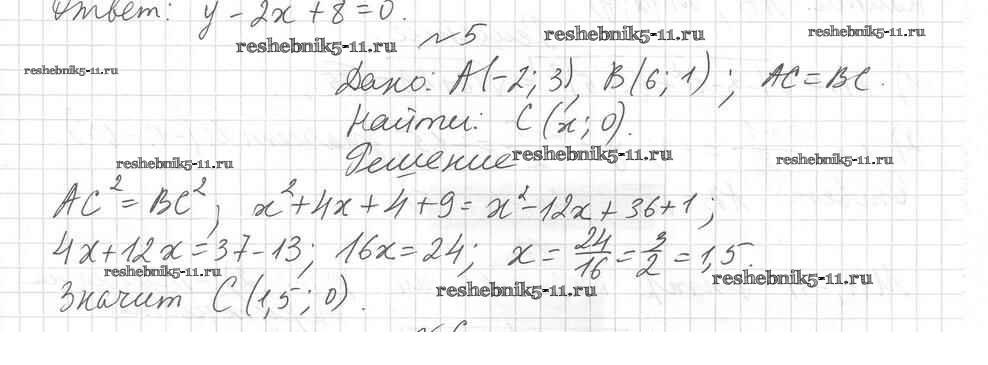 Ответ: y - 2x + 8 = 0.
reshebnik5-11.ru reshebnik5-11.ru reshebnik5-11.ru
№ 5
reshebnik5-11.ru
Дано: A(-2; 3), B(6; 1); AC = BC.
Найти: C(x; 0).
Решение reshebnik5-11.ru
reshebnik5-11.ru reshebnik5-11.ru
AC² = BC²; x² + 4x + 4 + 9 = x² - 12x + 36 + 1;
4x + 12x = 37 - 13; 16x = 24; x = 24/16 = 3/2 = 1,5.
reshebnik5-11.ru reshebnik5-11.ru reshebnik5-11.ru
Значит C(1,5; 0).